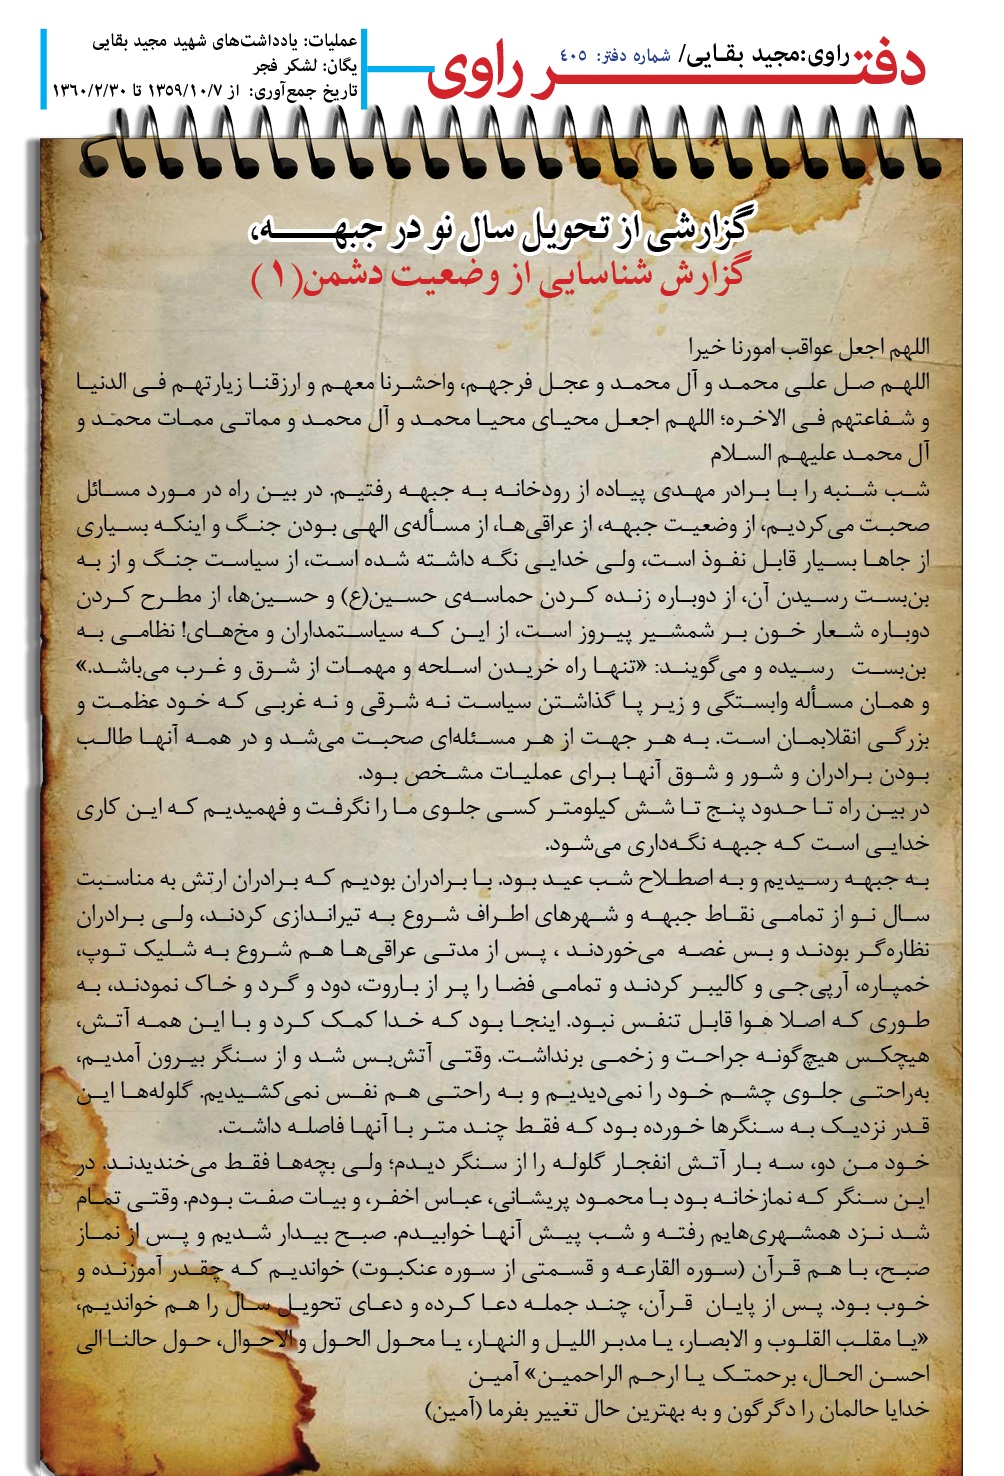 دفتر راوی
راوی:مجید بقایی/ شماره دفتر: ۴۰۵
عملیات: یادداشت‌های شهید مجید بقایی
یگان: لشکر فجر
تاریخ جمع‌آوری: از ۱۳۵۹/۱۰/۷ تا ۱۳۶۰/۲/۳۰
گزارشی از تحویل سال نو در جبهه،
گزارش شناسایی از وضعیت دشمن(۱)
اللهم اجعل عواقب امورنا خیرا
اللهم صل علی محمد و آل محمد و عجل فرجهم، واحشرنا معهم و ارزقنا زیارتهم فی الدنیا
و شفاعتهم فی الاخره؛ اللهم اجعل محیای محیا محمد و آل محمد و مماتی ممات محمد و
آل محمد علیهم السلام
شب شنبه را با برادر مهدی پیاده از رودخانه به جبهه رفتیم. در بین راه در مورد مسائل
صحبت می‌کردیم، از وضعیت جبهه، از عراقی‌ها، از مسأله‌ی الهی بودن جنگ و اینکه بسیاری
از جاها بسیار قابل نفوذ است، ولی خدایی نگه داشته شده است، از سیاست جنگ و از به
بن‌بست رسیدن آن، از دوباره زنده کردن حماسه‌ی حسین(ع) و حسین‌ها، از مطرح کردن
دوباره شعار خون بر شمشیر پیروز است، از این که سیاستمداران و مخ‌های! نظامی به
بن‌بست رسیده و می‌گویند: «تنها راه خریدن اسلحه و مهمات از شرق و غرب می‌باشد.»
و همان مسأله وابستگی و زیر پا گذاشتن سیاست نه شرقی و نه غربی که خود عظمت و
بزرگی انقلابمان است. به هر جهت از هر مسئله‌ای صحبت می‌شد و در همه آنها طالب
بودن برادران و شور و شوق آنها برای عملیات مشخص بود.
در بین راه تا حدود پنج تا شش کیلومتر کسی جلوی ما را نگرفت و فهمیدیم که این کاری
خدایی است که جبهه نگه‌داری می‌شود.
به جبهه رسیدیم و به اصطلاح شب عید بود. با برادران بودیم که برادران ارتش به مناسبت
سال نو از تمامی نقاط جبهه و شهرهای اطراف شروع به تیراندازی کردند، ولی برادران
نظاره‌گر بودند و بس غصه می‌خوردند ، پس از مدتی عراقی‌ها هم شروع به شلیک توپ،
خمپاره، آرپی‌جی و کالیبر کردند و تمامی فضا را پر از باروت، دود و گرد و خاک نمودند، به
طوری که اصلا هوا قابل تنفس نبود. اینجا بود که خدا کمک کرد و با این همه آتش،
هیچکس هیچ‌گونه جراحت و زخمی برنداشت. وقتی آتش‌بس شد و از سنگر بیرون آمدیم،
به‌راحتی جلوی چشم خود را نمی‌دیدیم و به راحتی هم نفس نمی‌کشیدیم. گلوله‌ها این
قدر نزدیک به سنگرها خورده بود که فقط چند متر با آنها فاصله داشت.
خود من دو، سه بار آتش انفجار گلوله را از سنگر دیدم؛ ولی بچه‌ها فقط می‌خندیدند. در
این سنگر که نمازخانه بود با محمود پریشانی، عباس اخفر، و بیات صفت بودم. وقتی تمام
شد نزد همشهری‌هایم رفته و شب پیش آنها خوابیدم. صبح بیدار شدیم و پس از نماز
صبح، با هم قرآن (سوره القارعه و قسمتی از سوره عنکبوت) خواندیم که چقدر آموزنده و
خوب بود. پس از پایان قرآن، چند جمله دعا کرده و دعای تحویل سال را هم خواندیم،
«یا مقلب القلوب و الابصار، یا مدبر اللیل و النهار، یا محول الحول و الاحوال، حول حالنا الی
احسن الحال، برحمتک یا ارحم الراحمین» آمین
خدایا حالمان را دگرگون و به بهترین حال تغییر بفرما (آمین)